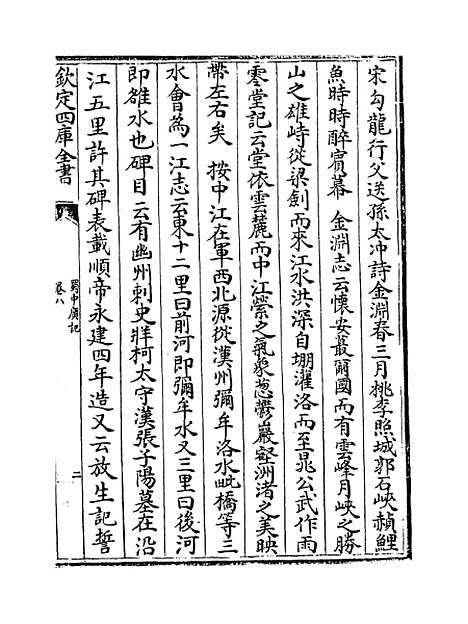 宋勾龍行父送孫太冲詩金淵春三月桃李照城郭石峽赬鯉
魚時時醉賓幕 金淵志云懷安蕞爾國而有雲峰月峽之勝
山之雄峙從梁劍而來江水洪深自堋灌洛而至晁公武作雨
霽堂記云堂依雲麓而中江縈之氣象葱鬱巖壑洲渚之美映
帶左右矣 按中江在軍西北源從漢州彌牟洛水毗橋等三
水會為一江志云東十二里曰前河即彌牟水又三里曰後河
即雒水也碑目云有幽州刺史牂柯太守漢張子陽墓在沿
江五里許其碑表載順帝永建四年造又云放生記誓
欽定四庫全書
蜀中廣記
卷八
二